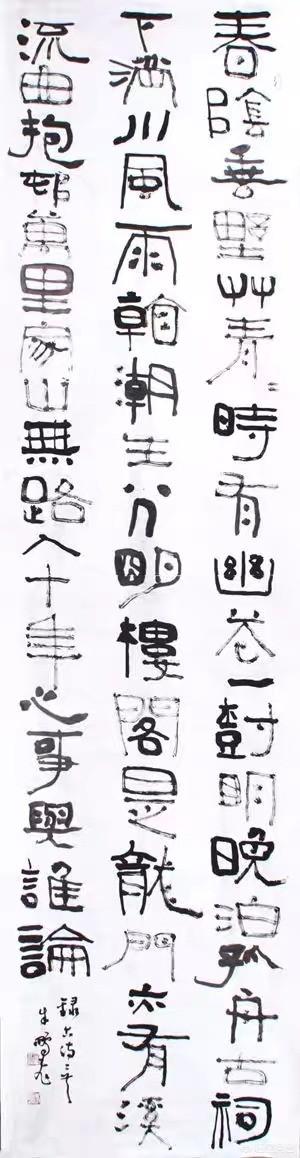 春陰垂野艸青〻時有幽花一尌明晚泊孤舟古祠
下滿川風雨看潮生分明樓閣是龍門亦有溪
流曲抱邨萬里家山無路入十年心事與誰論
錄古詩二首